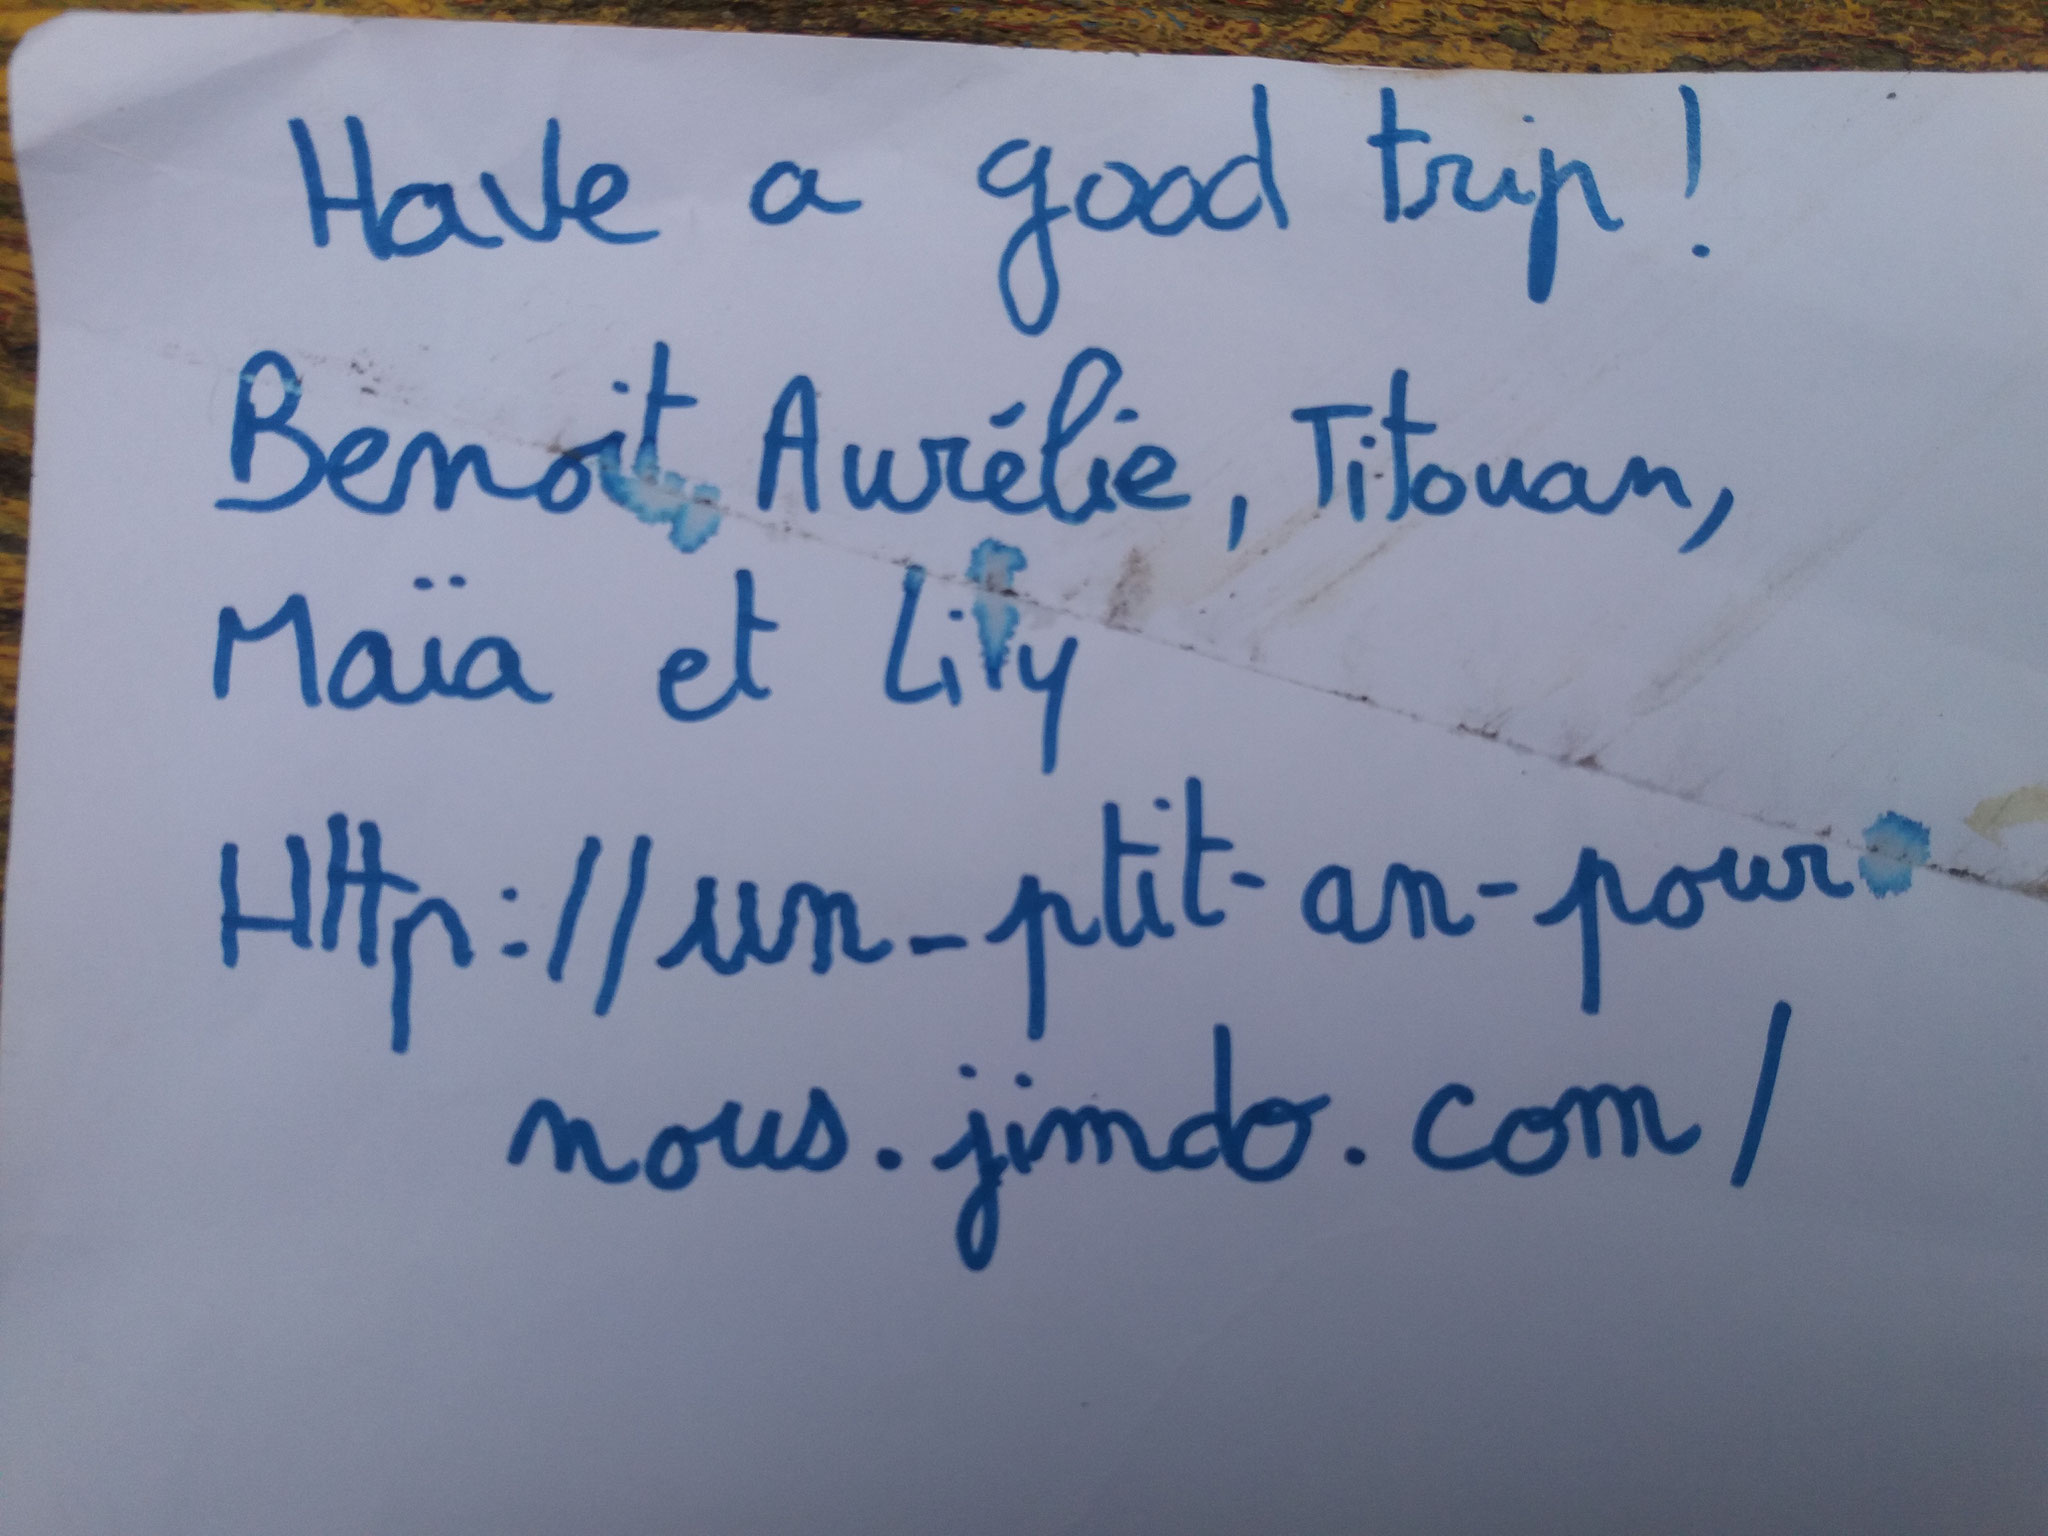 Have a good trip!
Benoit Aurélie, Titouan,
Maïa et Lily
Http://un-ptit-an-pour-
nous.jimdo.com/